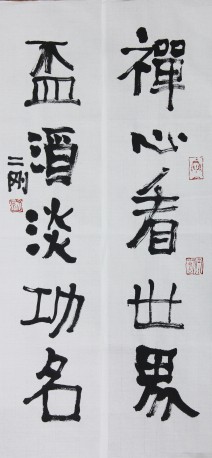 禪心看世界
盃酒淡功名
二刚